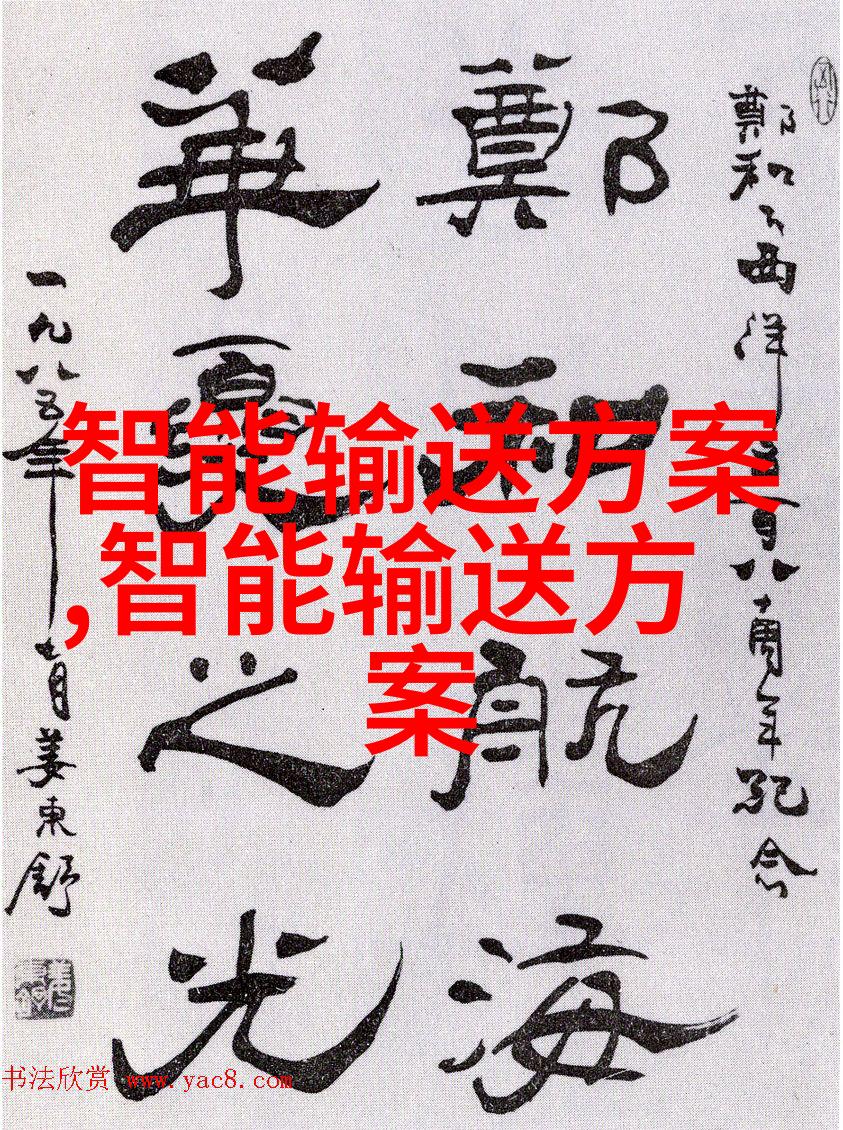 鄭和下西洋百八十周年紀念
鄭和航海
華夏之光
一九八五年七月姜東舒
智能输送方案
,智能输送方
案
书法欣赏 www.yac8.com